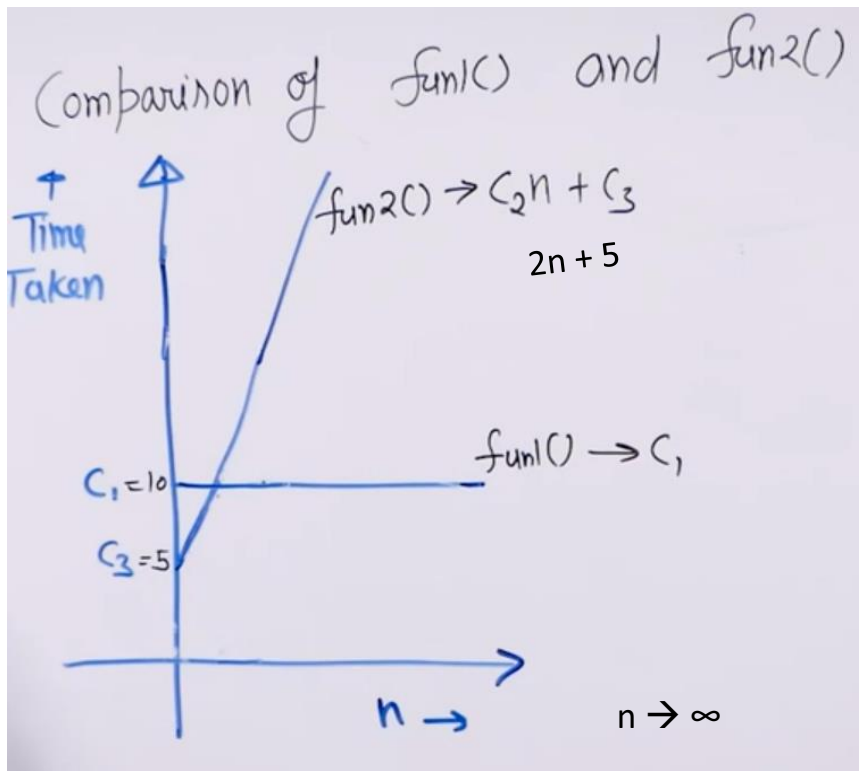 Comparison of fun1() and fun2()
↑
Time
Taken
fun2() → C₂n + C₃
2n + 5
fun1() → C₁
C₁ = 10
C₃ = 5
n →
n → ∞